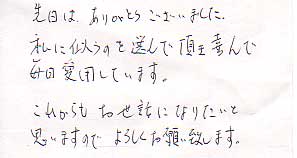 先日は、ありがとうございました。
私に似合うのを選んで頂き喜んで
毎日愛用しています。
これからもお世話になりたいと
思いますのでよろしくお願い致します。